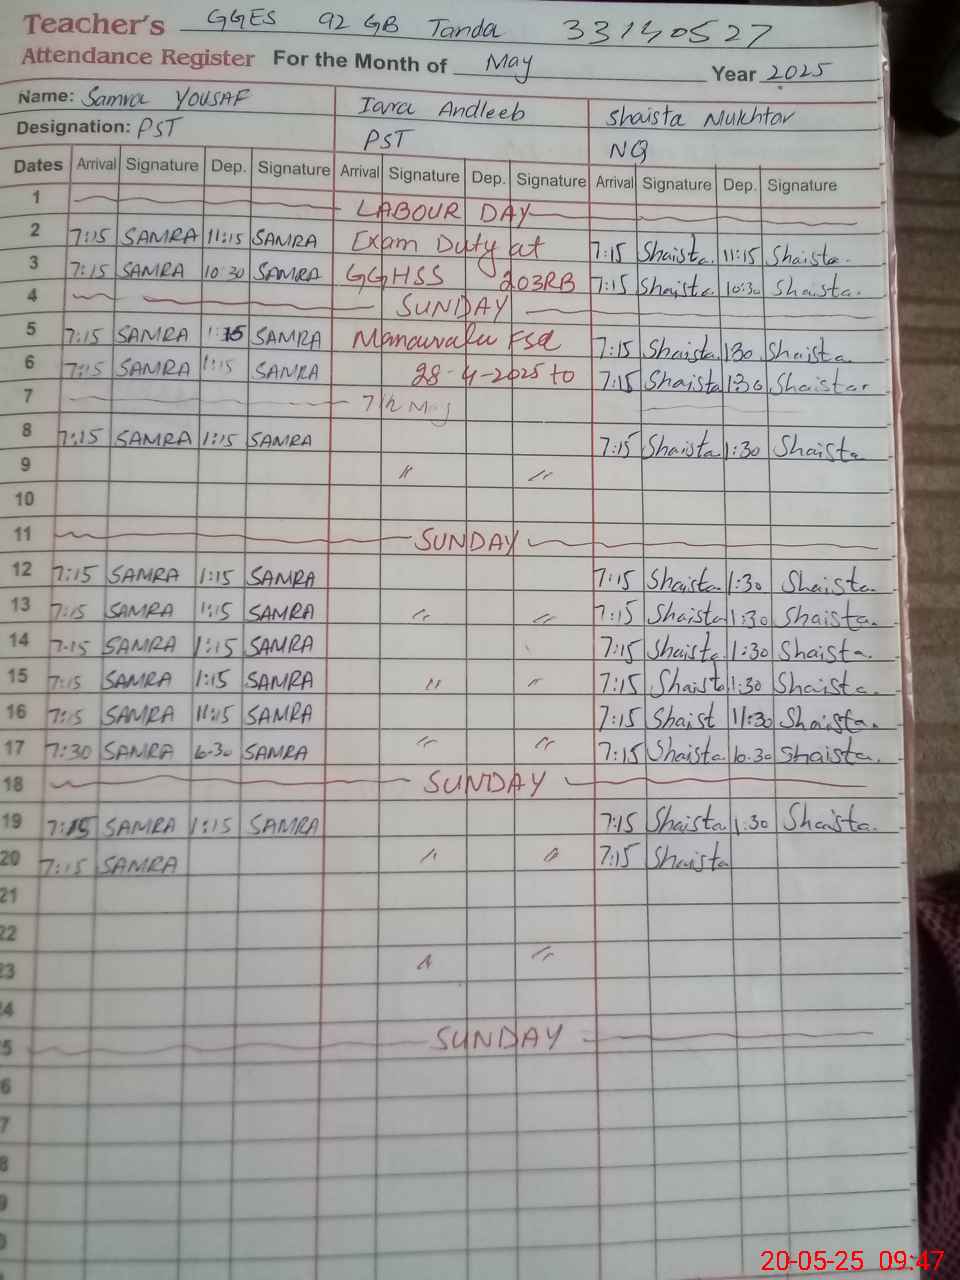 Teacher's GGES 92 GB Tanda 33140527
Attendance Register For the Month of May Year 2025
Name: Samra YOUSAF Iara Andleeb Shaista Mukhtar
Designation: PST PST NQ
Dates Arrival Signature Dep. Signature Arrival Signature Dep. Signature Arrival Signature Dep. Signature
1 LABOUR DAY
2 7:15 SAMRA 11:15 SAMRA Exam Duty at 7:15 Shaista 11:15 Shaista.
3 7:15 SAMRA 10:30 SAMRA GGHSS 203RB 7:15 Shaista 10:30 Shaista.
4 SUNDAY
5 7:15 SAMRA 1:15 SAMRA Manawala Fsd 7:15 Shaista 130 Shaista
6 7:15 SAMRA 1:15 SAMRA 28-4-2025 to 7:15 Shaista 1:30 Shaista
7
8 7:15 SAMRA 1:15 SAMRA 7:15 Shaista 1:30 Shaista
9 " "
10
11 SUNDAY
12 7:15 SAMRA 1:15 SAMRA 7:15 Shaista 1:30 Shaista.
13 7:15 SAMRA 1:15 SAMRA " " 7:15 Shaista 1:30 Shaista.
14 7:15 SAMRA 1:15 SAMRA 7:15 Shaista 1:30 Shaista.
15 7:15 SAMRA 1:15 SAMRA " " 7:15 Shaista 1:30 Shaista.
16 7:15 SAMRA 11:15 SAMRA 7:15 Shaist 11:30 Shaista.
17 7:30 SAMRA 6-30 SAMRA " " 7:15 Shaista 10.30 Shaista.
18 SUNDAY
19 7:15 SAMRA 1:15 SAMRA 7:15 Shaista 1:30 Shaista.
20 7:15 SAMRA " " 7:15 Shaista
21
22
23 " "
4
5 SUNDAY
6
7
8
9
20-05-25 09:47